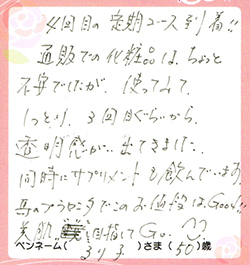 4回目の定期コース到着!!
通販での化粧品は、ちょっと
不安でしたが、使ってみて、
しっとり、3回目ぐらいから、
透明感が出てきました。
同時にサプリメントも飲んでいます。
馬のプラセンタでこのお値段はGood!!
美肌目指してGo.
ペンネーム(まり子)さま(50)歳